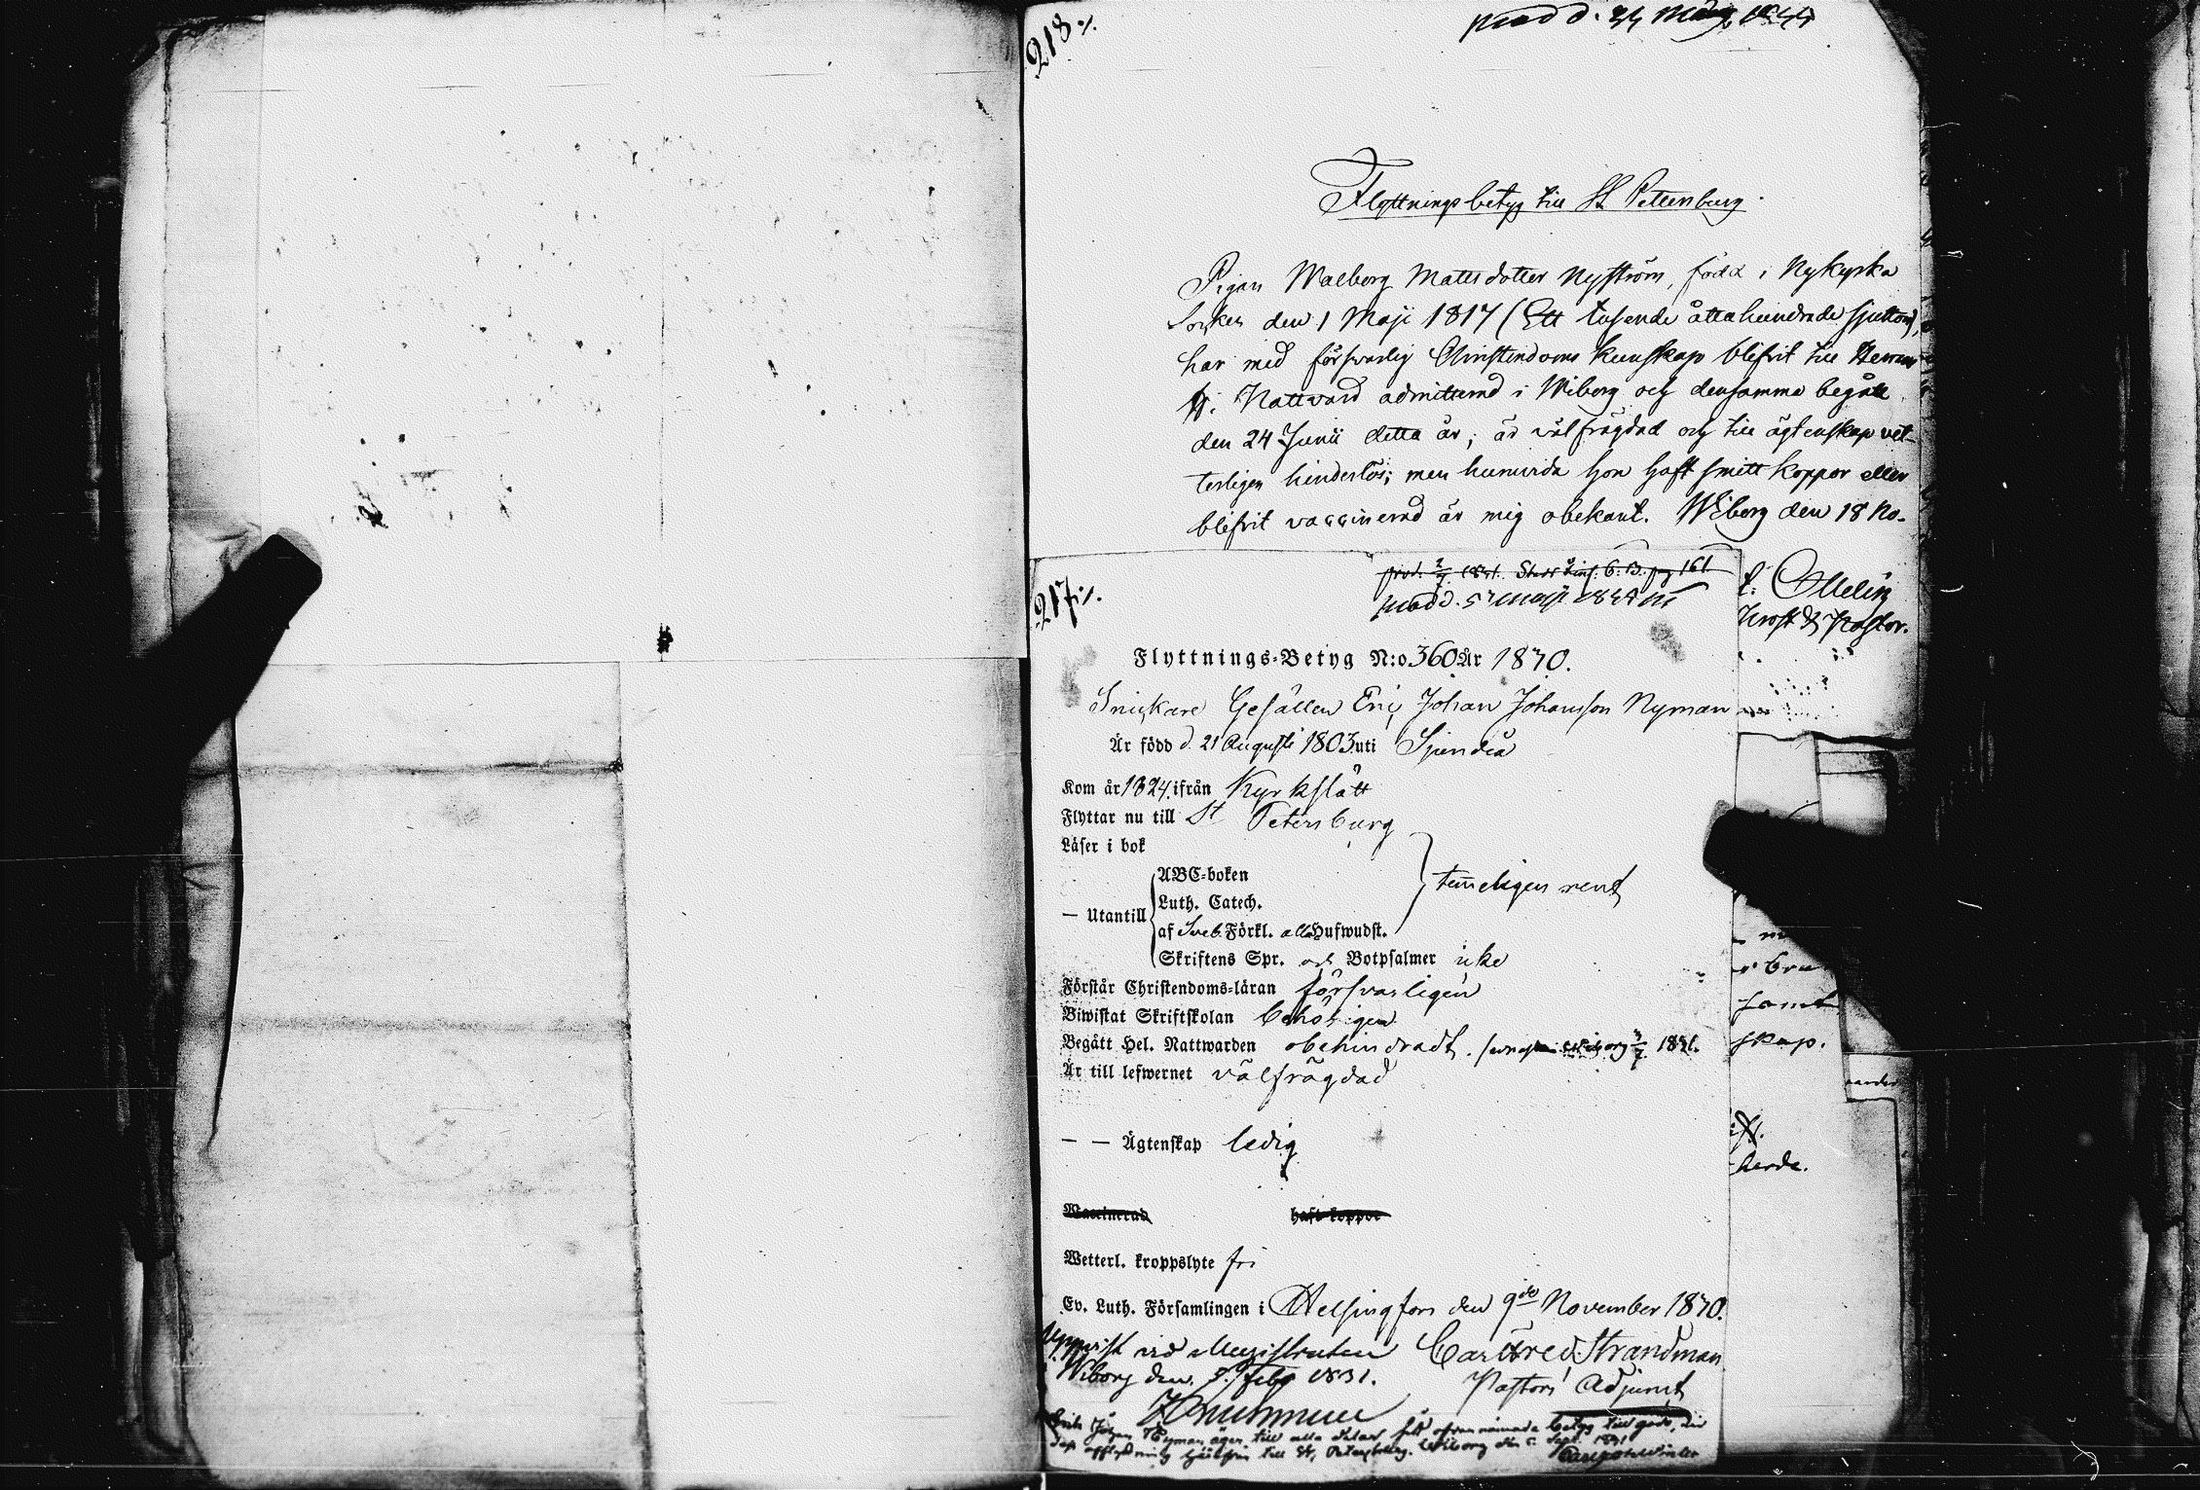 218 ⁒.
Flyttningsbetyg till St Pettersburg.
Pigan Walborg Mattsdotter Nyström, född i Nykyrka
Socken den 1 Maji 1817 (Ett tusende åttahundrade sjutton),
har med försvarlig Christendoms kunskap blifvit till Herrans
H. Nattvard admitterad i Wiborg och densamma begått
den 24 Junii detta år; är välfrägdad och till ägtenskap vet-
terligen hinderlös; men huruvida hon haft smitt koppor eller
blifvit vaccinerad är mig obekant. Wiborg den 18 No-
Prost & Pastor.
217 ⁒.
Flyttnings-Betyg N:o 360 År 1830.
Snickare Gesällen Eric Johan Johansson Nyman
Är född d. 21 Augusti 1803 uti Sjundeå
Kom år 1824 ifrån Kyrkslätt
Flyttar nu till St Petersburg
Läser i bok
ABC-boken
Luth. Catech.
temeligen rent
— Utantill
af Sveb. Förkl. alla Hufwudst.
Skriftens Spr. och Botpsalmer icke
Förstår Christendoms-läran försvarligen
Biwistat Skriftskolan behörigen
Begått Hel. Nattwarden obehindradt. 1831.
Är till lefwernet välfrägdad
— — Ägtenskap ledig
Waccinerad haft koppor
Wetterl. kroppslyte fri
Ev. Luth. Församlingen i Helsingfors den 9de November 1830.
Uppvist vid Magistraten Strandman
Wiborg den Feb 1831. Pastors Adjunct
Nyman äger till alla delar betyg till godo,
till St. Petersburg. Wiborg den Sept. 1831
samt
skap.